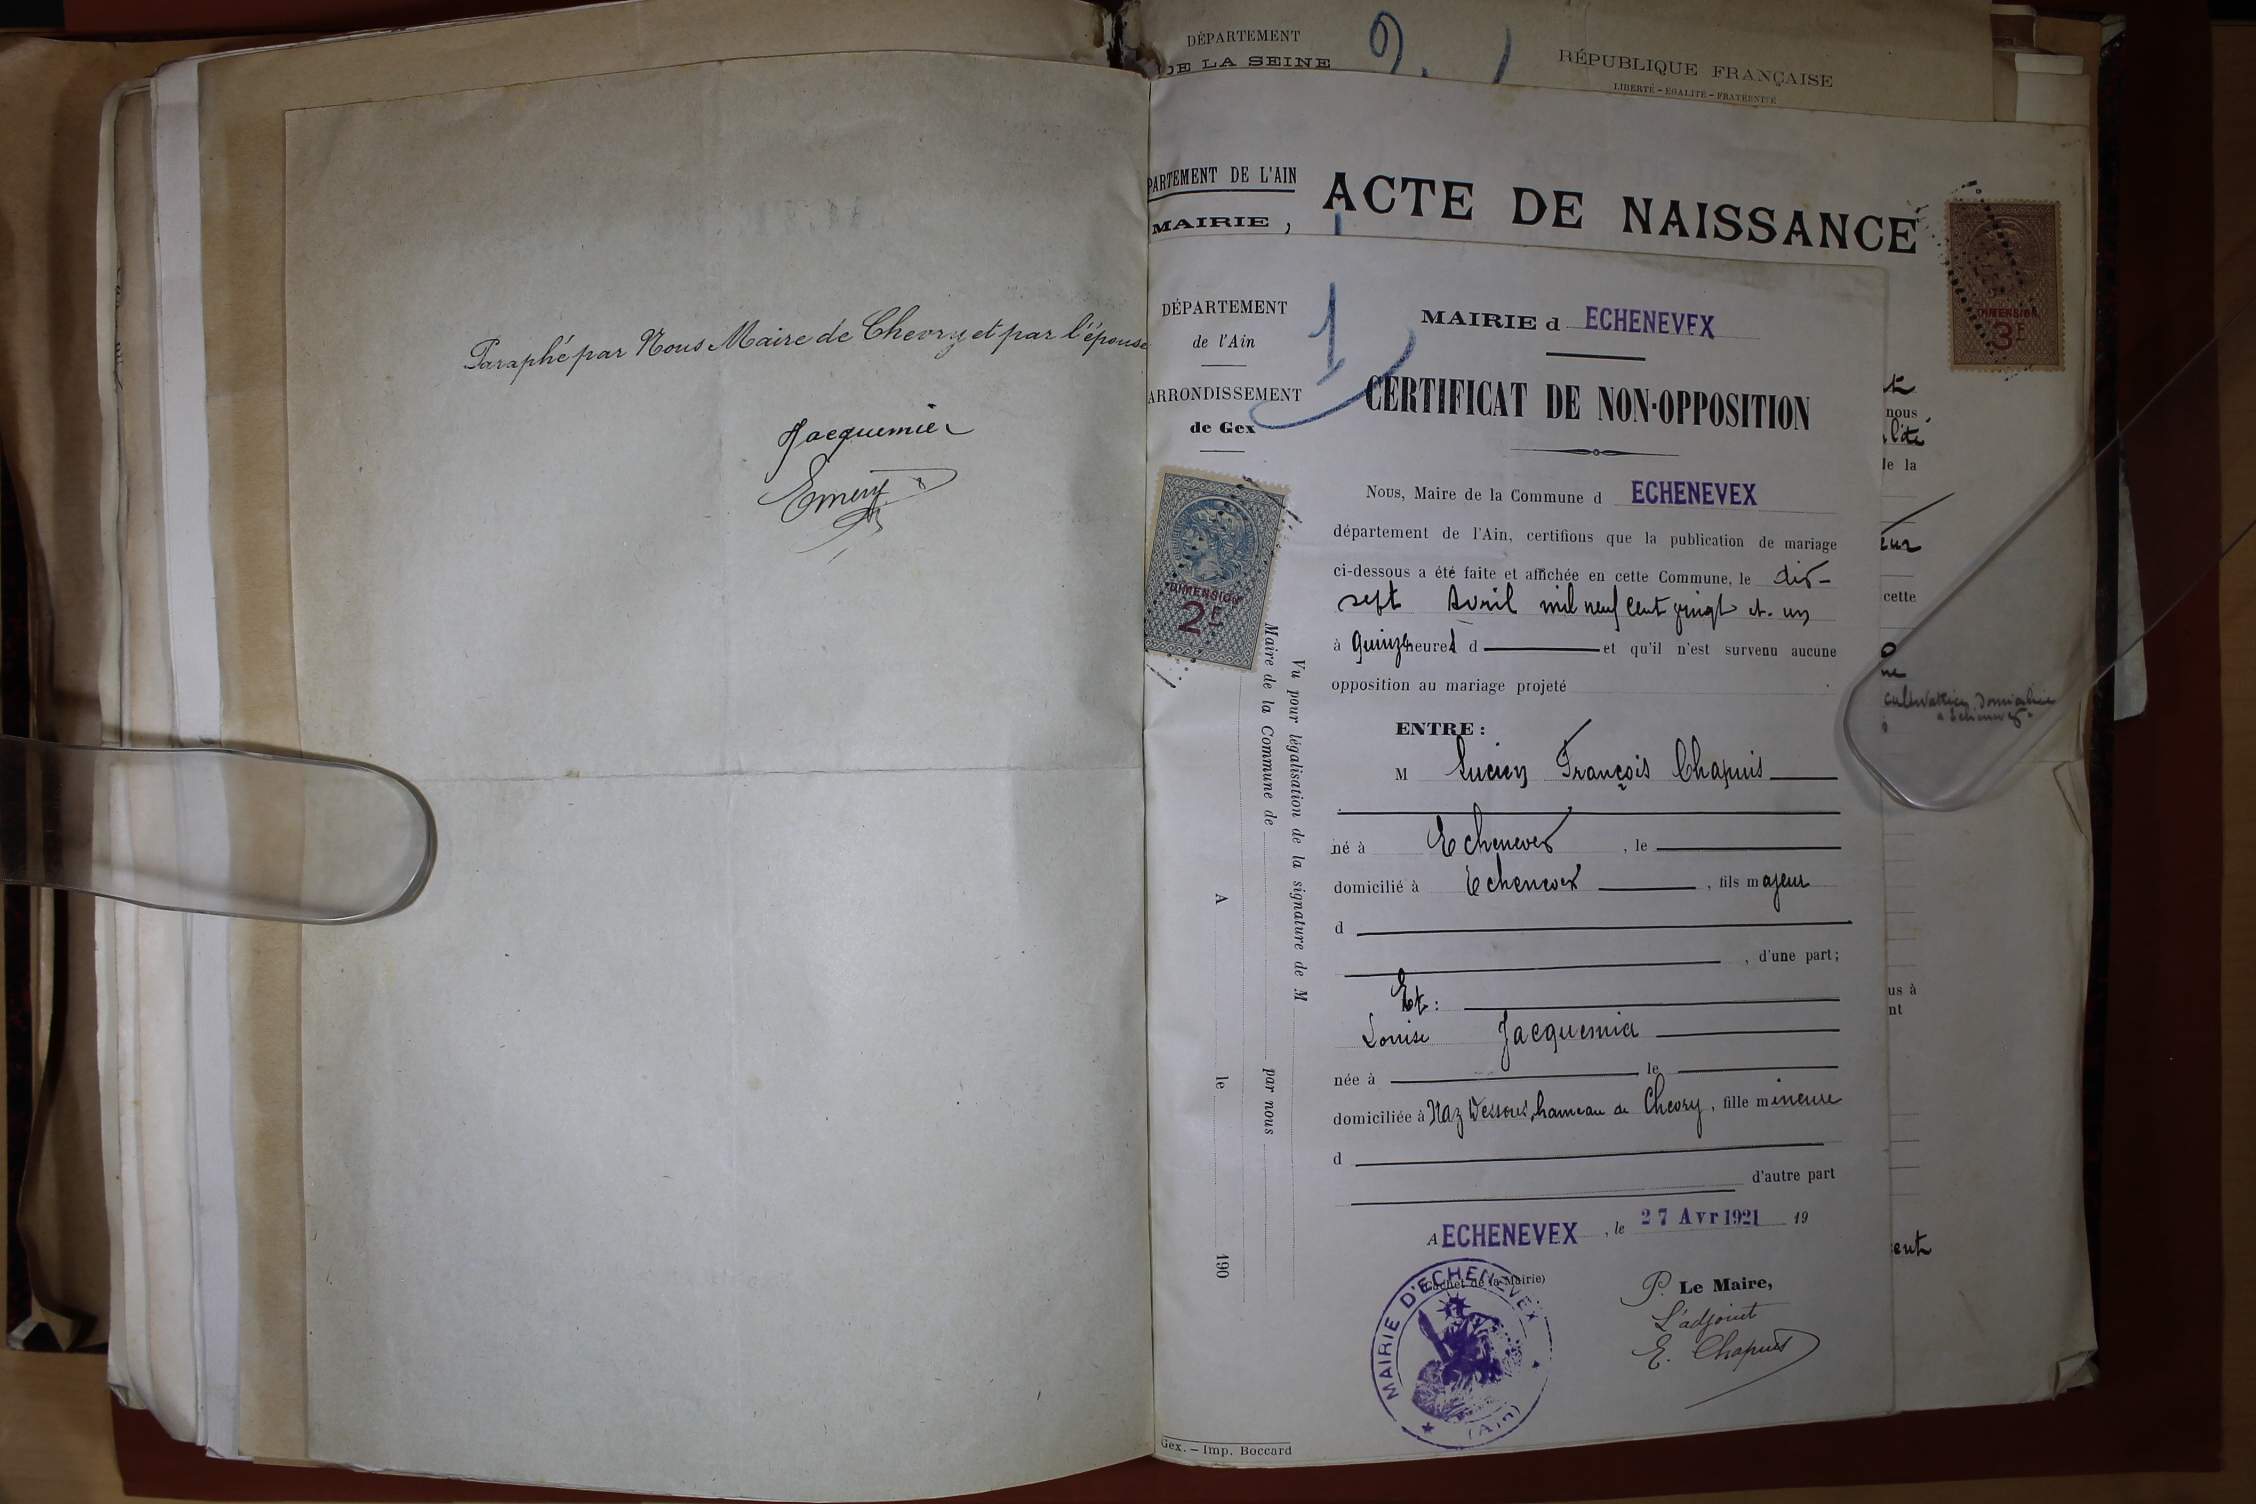 Paraphé par Nous Maire de Chevry et par l'épouse
Jacquemier
Emery
DÉPARTEMENT
DE LA SEINE
2
RÉPUBLIQUE FRANÇAISE
LIBERTÉ - EGALITÉ - FRATERNITÉ
PARTEMENT DE L'AIN
MAIRIE,
ACTE DE NAISSANCE
DIMENSION
3F
DÉPARTEMENT
de l'Ain
ARRONDISSEMENT
de Gex
1
DIMENSION
2F
MAIRIE d ECHENEVEX
CERTIFICAT DE NON-OPPOSITION
Nous, Maire de la Commune d ECHENEVEX
département de l'Ain, certifions que la publication de mariage
ci-dessous a été faite et affichée en cette Commune, le dix-
sept Avril mil neuf cent vingt et un
à quinze heures d et qu'il n'est survenu aucune
opposition au mariage projeté
ENTRE :
M Lucien François Chapuis
né à Echenevex, le
domicilié à Echenevex, fils majeur
d
, d'une part;
Et :
Louise Jacquemier
née à le
domiciliée à Naz Dessous, hameau de Chevry, fille mineure
d
d'autre part
A ECHENEVEX, le 27 Avr 1921 19
(Cachet de la Mairie)
MAIRIE D'ECHENEVEX
(Ain)
P. Le Maire,
L'adjoint
E. Chapuis
Vu pour légalisation de la signature de M
Maire de la Commune de par nous
A le 190
Gex. - Imp. Boccard
nous
l'été
de la
eur
cette
ne
cultivatrice, domiciliée
à Echenevex
us à
nt
cent